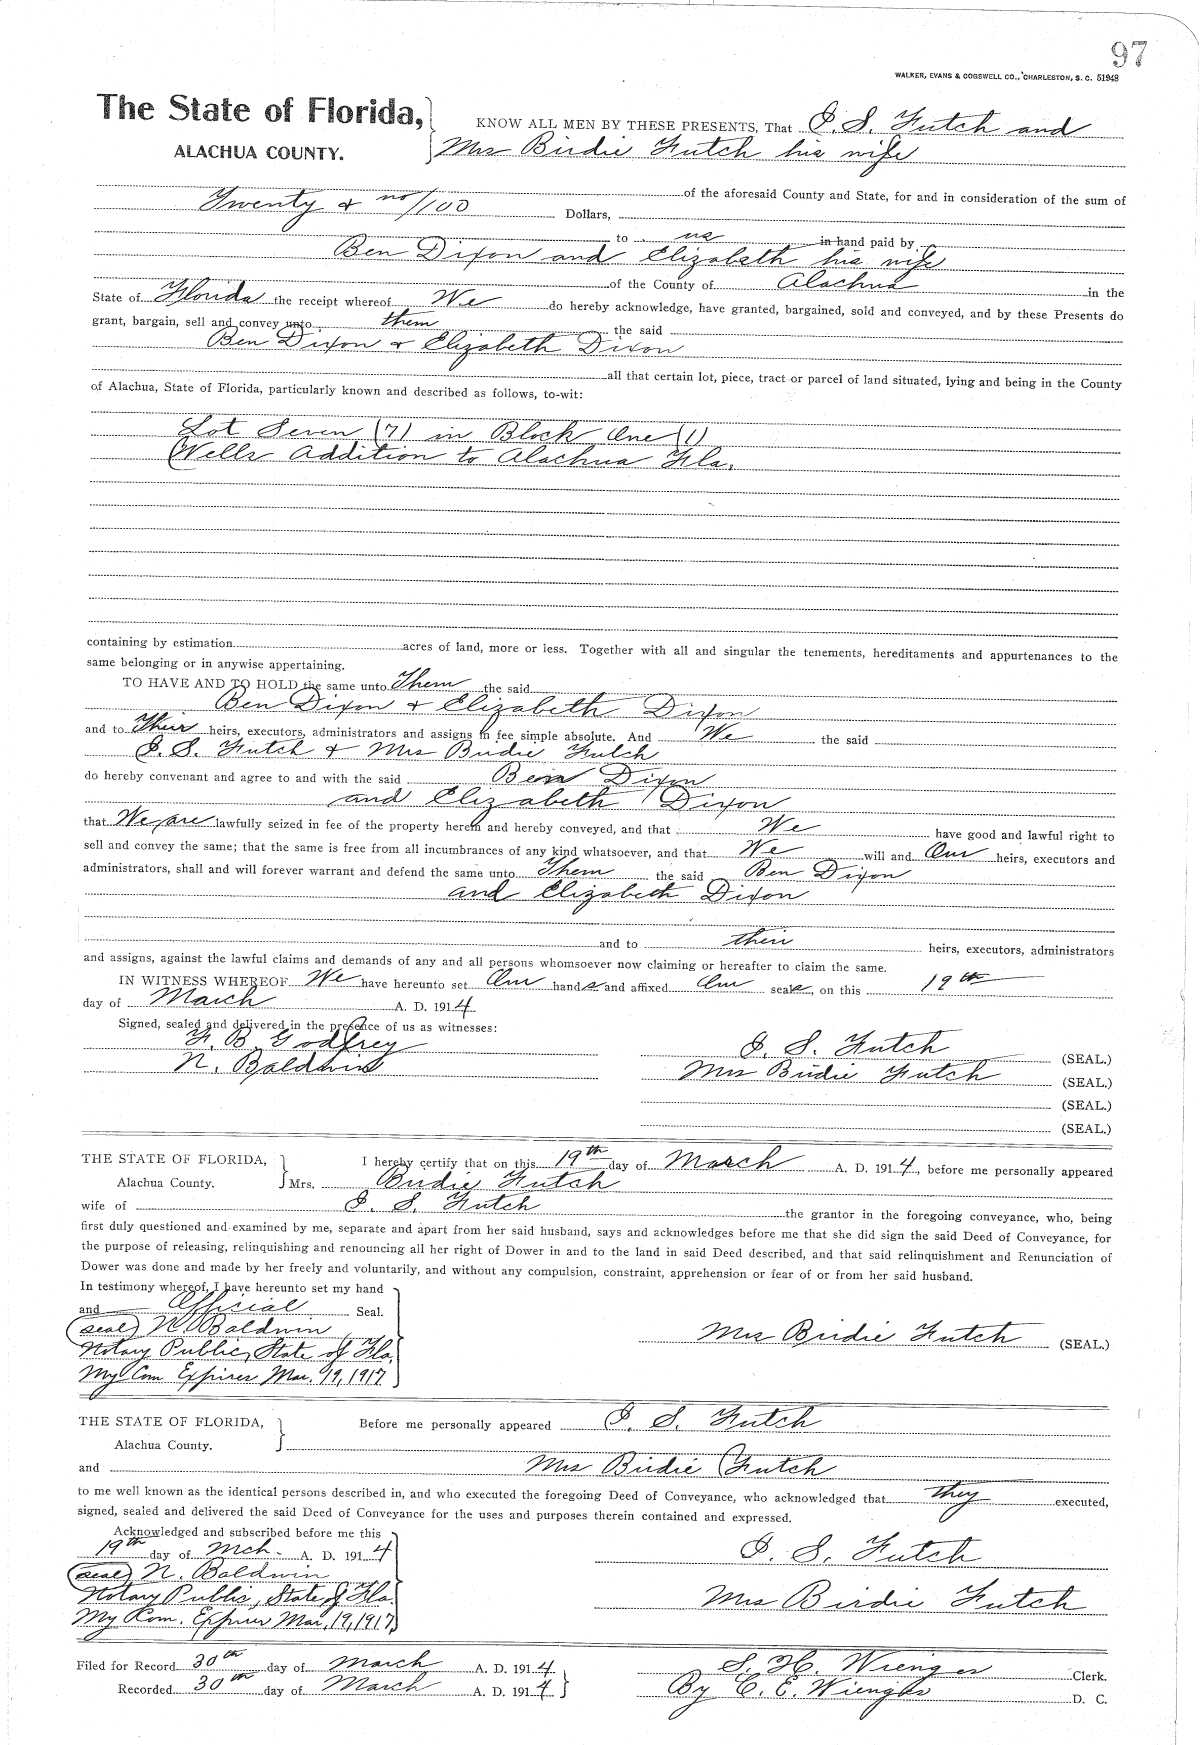 97
WALKER, EVANS & COGSWELL CO., CHARLESTON, S. C. 51948
The State of Florida,
ALACHUA COUNTY.
KNOW ALL MEN BY THESE PRESENTS, That J. S. Futch and
Mrs Birdie Futch his wife
of the aforesaid County and State, for and in consideration of the sum of
Twenty & no/100 Dollars,
to us in hand paid by
Ben Dixon and Elizabeth his wife
of the County of Alachua in the
State of Florida the receipt whereof We do hereby acknowledge, have granted, bargained, sold and conveyed, and by these Presents do
grant, bargain, sell and convey unto them the said
Ben Dixon & Elizabeth Dixon
all that certain lot, piece, tract or parcel of land situated, lying and being in the County
of Alachua, State of Florida, particularly known and described as follows, to-wit:
Lot Seven (7) in Block One (1)
Wells Addition to Alachua Fla.
containing by estimation acres of land, more or less. Together with all and singular the tenements, hereditaments and appurtenances to the
same belonging or in anywise appertaining.
TO HAVE AND TO HOLD the same unto Them the said
Ben Dixon & Elizabeth Dixon
and to Their heirs, executors, administrators and assigns in fee simple absolute. And We the said
J. S. Futch & Mrs Birdie Futch
do hereby convenant and agree to and with the said Ben Dixon
and Elizabeth Dixon
that We are lawfully seized in fee of the property herein and hereby conveyed, and that We have good and lawful right to
sell and convey the same; that the same is free from all incumbrances of any kind whatsoever, and that We will and Our heirs, executors and
administrators, shall and will forever warrant and defend the same unto Them the said Ben Dixon
and Elizabeth Dixon
and to their heirs, executors, administrators
and assigns, against the lawful claims and demands of any and all persons whomsoever now claiming or hereafter to claim the same.
IN WITNESS WHEREOF We have hereunto set Our hands and affixed Our seals, on this 19th
day of March A. D. 1914
Signed, sealed and delivered in the presence of us as witnesses:
F. B. Godfrey
N. Baldwin
J. S. Futch (SEAL.)
Mrs Birdie Futch (SEAL.)
(SEAL.)
(SEAL.)
THE STATE OF FLORIDA,
Alachua County.
I hereby certify that on this 19th day of March A. D. 1914, before me personally appeared
Mrs. Birdie Futch
wife of J. S. Futch the grantor in the foregoing conveyance, who, being
first duly questioned and examined by me, separate and apart from her said husband, says and acknowledges before me that she did sign the said Deed of Conveyance, for
the purpose of releasing, relinquishing and renouncing all her right of Dower in and to the land in said Deed described, and that said relinquishment and Renunciation of
Dower was done and made by her freely and voluntarily, and without any compulsion, constraint, apprehension or fear of or from her said husband.
In testimony whereof, I have hereunto set my hand
and Official Seal.
(seal) N. Baldwin
Notary Public, State of Fla.
My Com Expires Mar. 19, 1917
Mrs Birdie Futch (SEAL.)
THE STATE OF FLORIDA,
Alachua County.
Before me personally appeared J. S. Futch
and Mrs Birdie Futch
to me well known as the identical persons described in, and who executed the foregoing Deed of Conveyance, who acknowledged that they executed,
signed, sealed and delivered the said Deed of Conveyance for the uses and purposes therein contained and expressed.
Acknowledged and subscribed before me this
19th day of Mch. A. D. 1914
(seal) N. Baldwin
Notary Public, State of Fla.
My Com. Expires Mar, 19, 1917
J. S. Futch
Mrs Birdie Futch
Filed for Record 30th day of March A. D. 1914
Recorded 30th day of March A. D. 1914
S. H. Wienges Clerk.
By C. E. Wienges D. C.